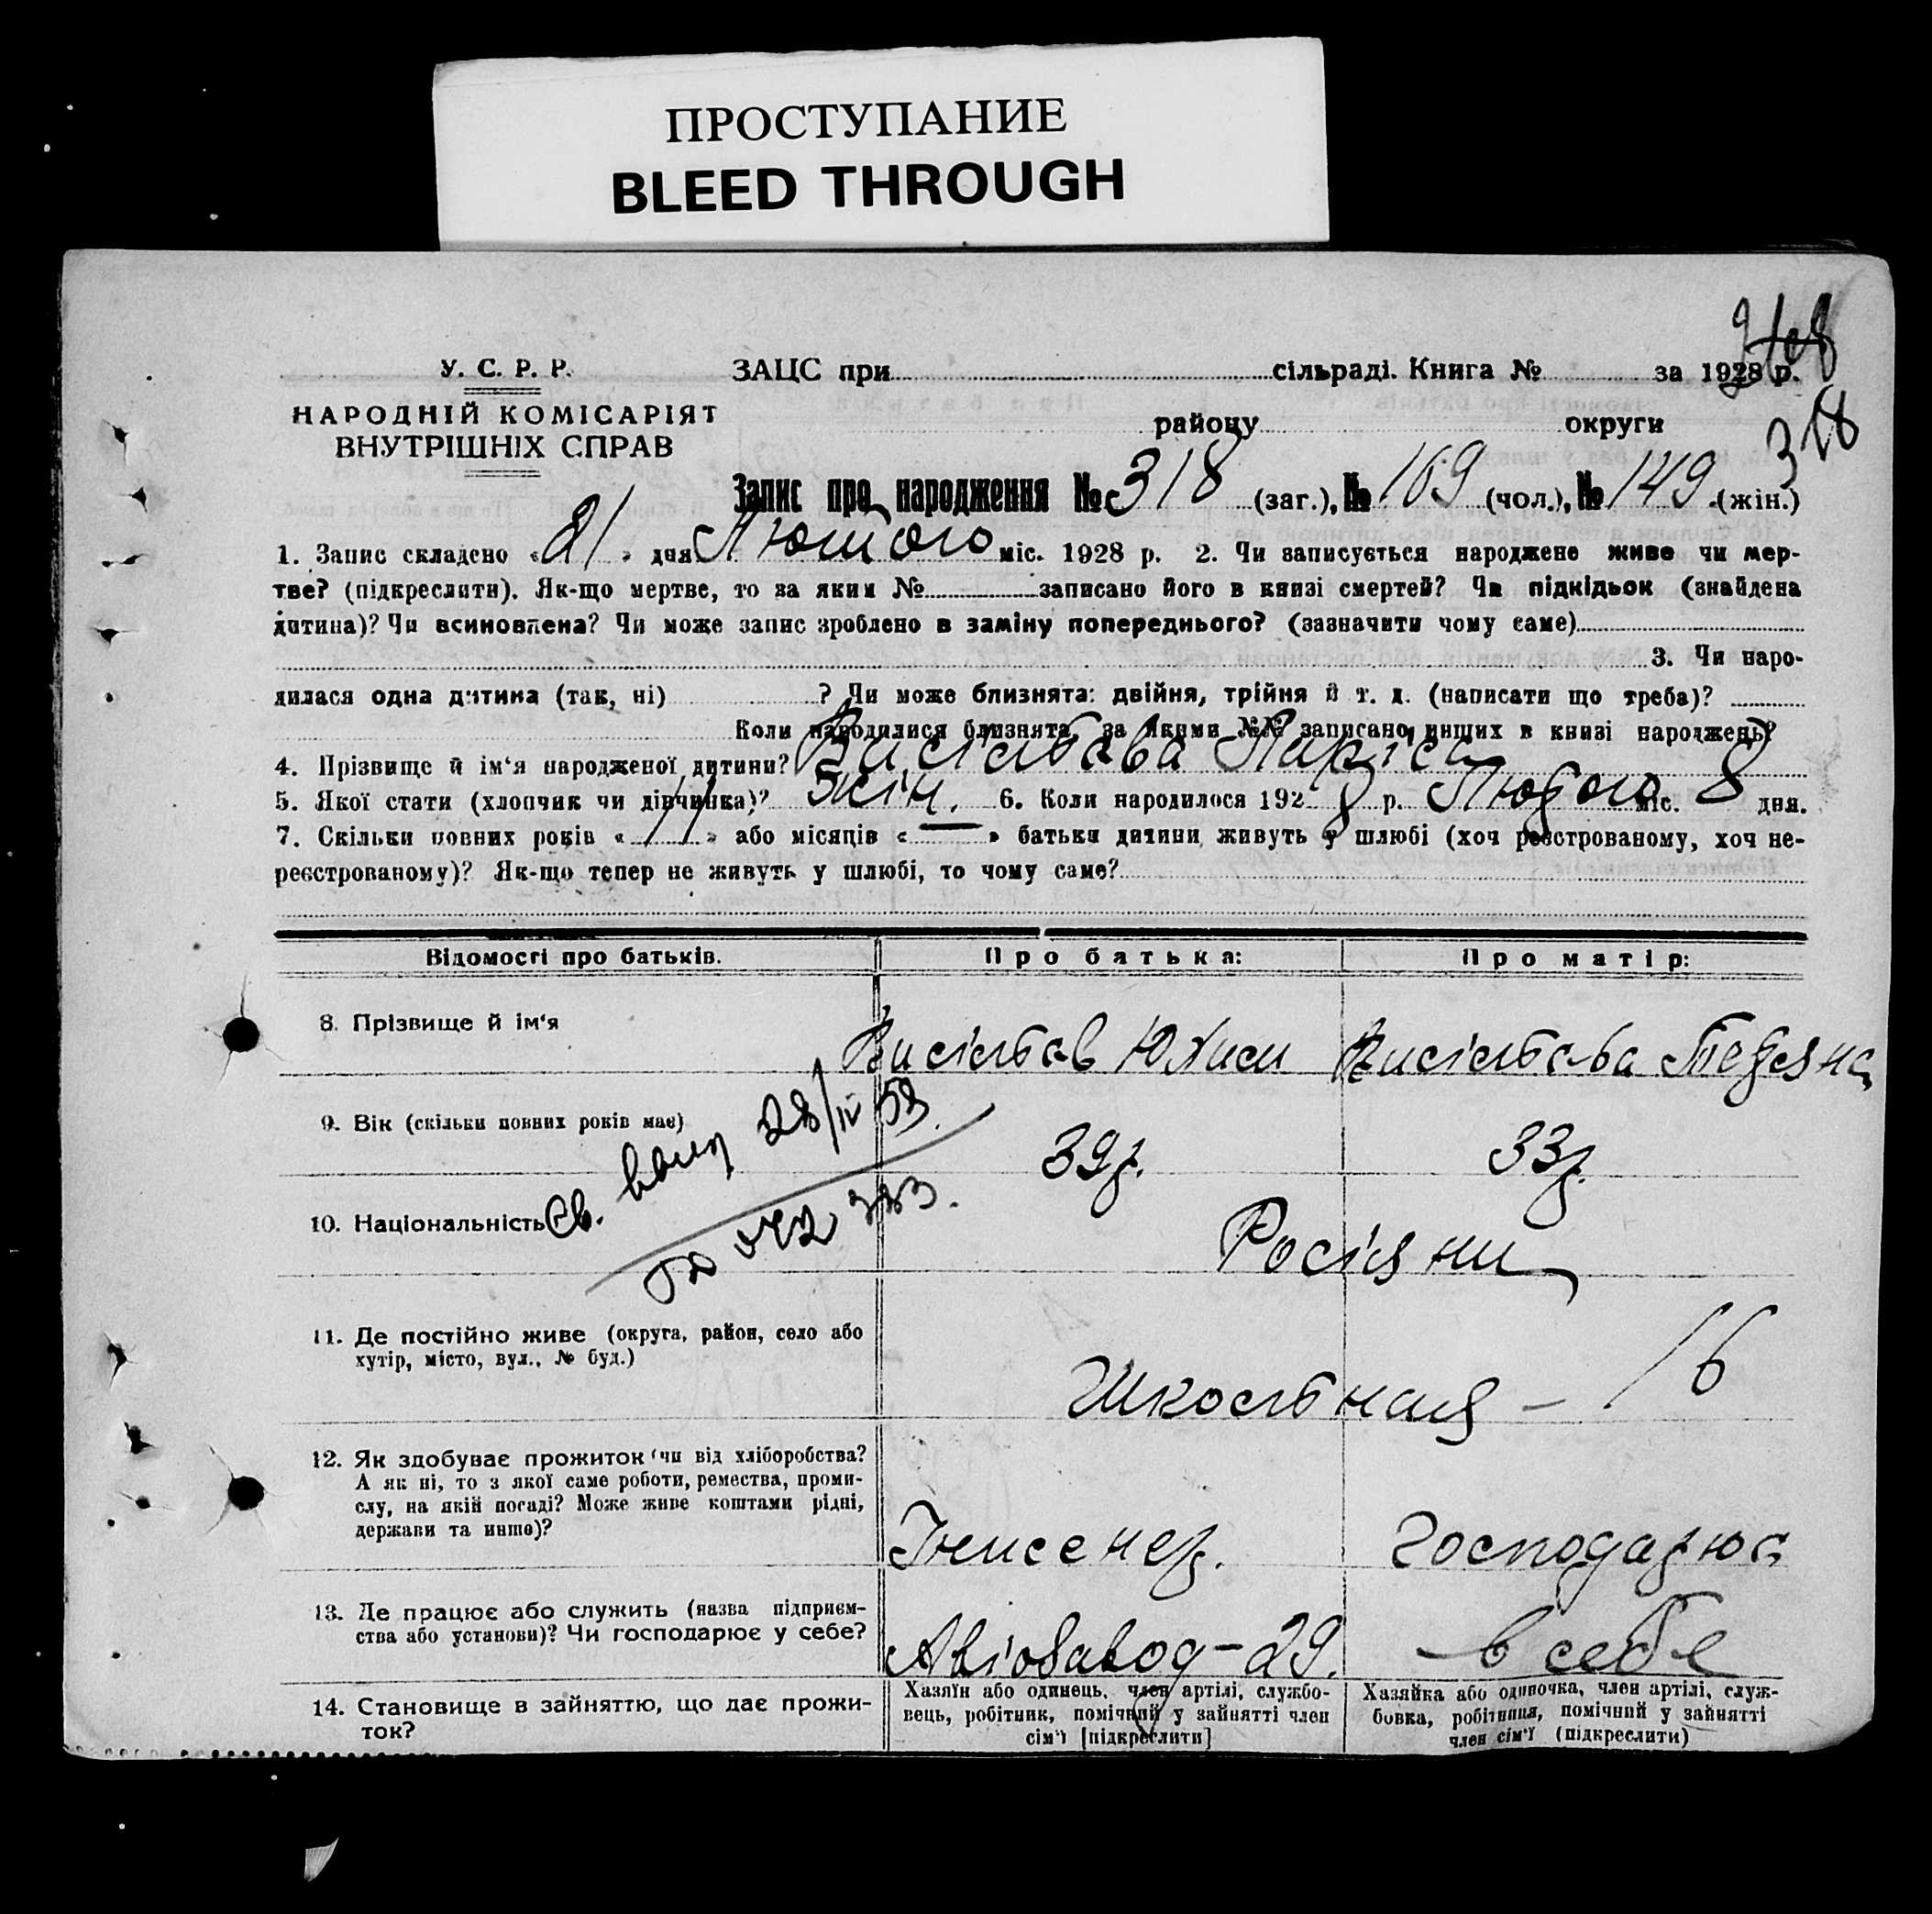 ПРОСТУПАНИЕ
BLEED THROUGH
У. С. Р. Р.
ЗАЦС при сільраді. Книга № за 1928 р.
НАРОДНІЙ КОМІСАРІЯТ
ВНУТРІШНІХ СПРАВ
району округи
318
Запис про народження № 318 (заг.), № 169 (чол.), № 149 (жін.)
1. Запис складено « 21 » дня Лютого міс. 1928 р. 2. Чи записується народжене живе чи мер-
тве? (підкреслити). Як-що мертве, то за яким № записано його в книзі смертей? Чи підкідьок (знайдена
дитина)? Чи всиновлена? Чи може запис зроблено в заміну попереднього? (зазначити чому саме)
3. Чи наро-
дилася одна дитина (так, ні) ? Чи може близнята: двійня, трійня й т. д. (написати що треба)?
Коли народилися близнята, за якими №№ записано инших в книзі народжень?
4. Прізвище й ім‘я народженої дитини?
5. Якої стати (хлопчик чи дівчинка)? жін. 6. Коли народилося 1928 р. Лютого міс. 8 дня.
7. Скільки повних років « 11 » або місяців « — » батьки дитини живуть у шлюбі (хоч реєстрованому, хоч не-
реєстрованому)? Як-що тепер не живуть у шлюбі, то чому саме?
Відомості про батьків. Про батька: Про матір:
8. Прізвище й ім‘я
9. Вік (скільки повних років має) 39р. 33р.
28/IV 59.
10. Національність Росіяни
11. Де постійно живе (округа, район, село або
хутір, місто, вул., № буд.)
Школьная – 16
12. Як здобуває прожиток (чи від хліборобства?
А як ні, то з якої саме роботи, ремества, проми-
слу, на якій посаді? Може живе коштами рідні,
держави та инше)?
Інженер. Господарює
13. Де працює або служить (назва підприєм-
ства або установи)? Чи господарює у себе?
Авіозавод – 29. в себе
14. Становище в зайняттю, що дає прожи-
ток?
Хазяїн або одинець, член артілі, службо-
вець, робітник, помічний у зайнятті член
сім‘ї [підкреслити]
Хазяйка або одиночка, член артілі, служ-
бовка, робітниця, помічний у зайнятті
член сім‘ї (підкреслити)